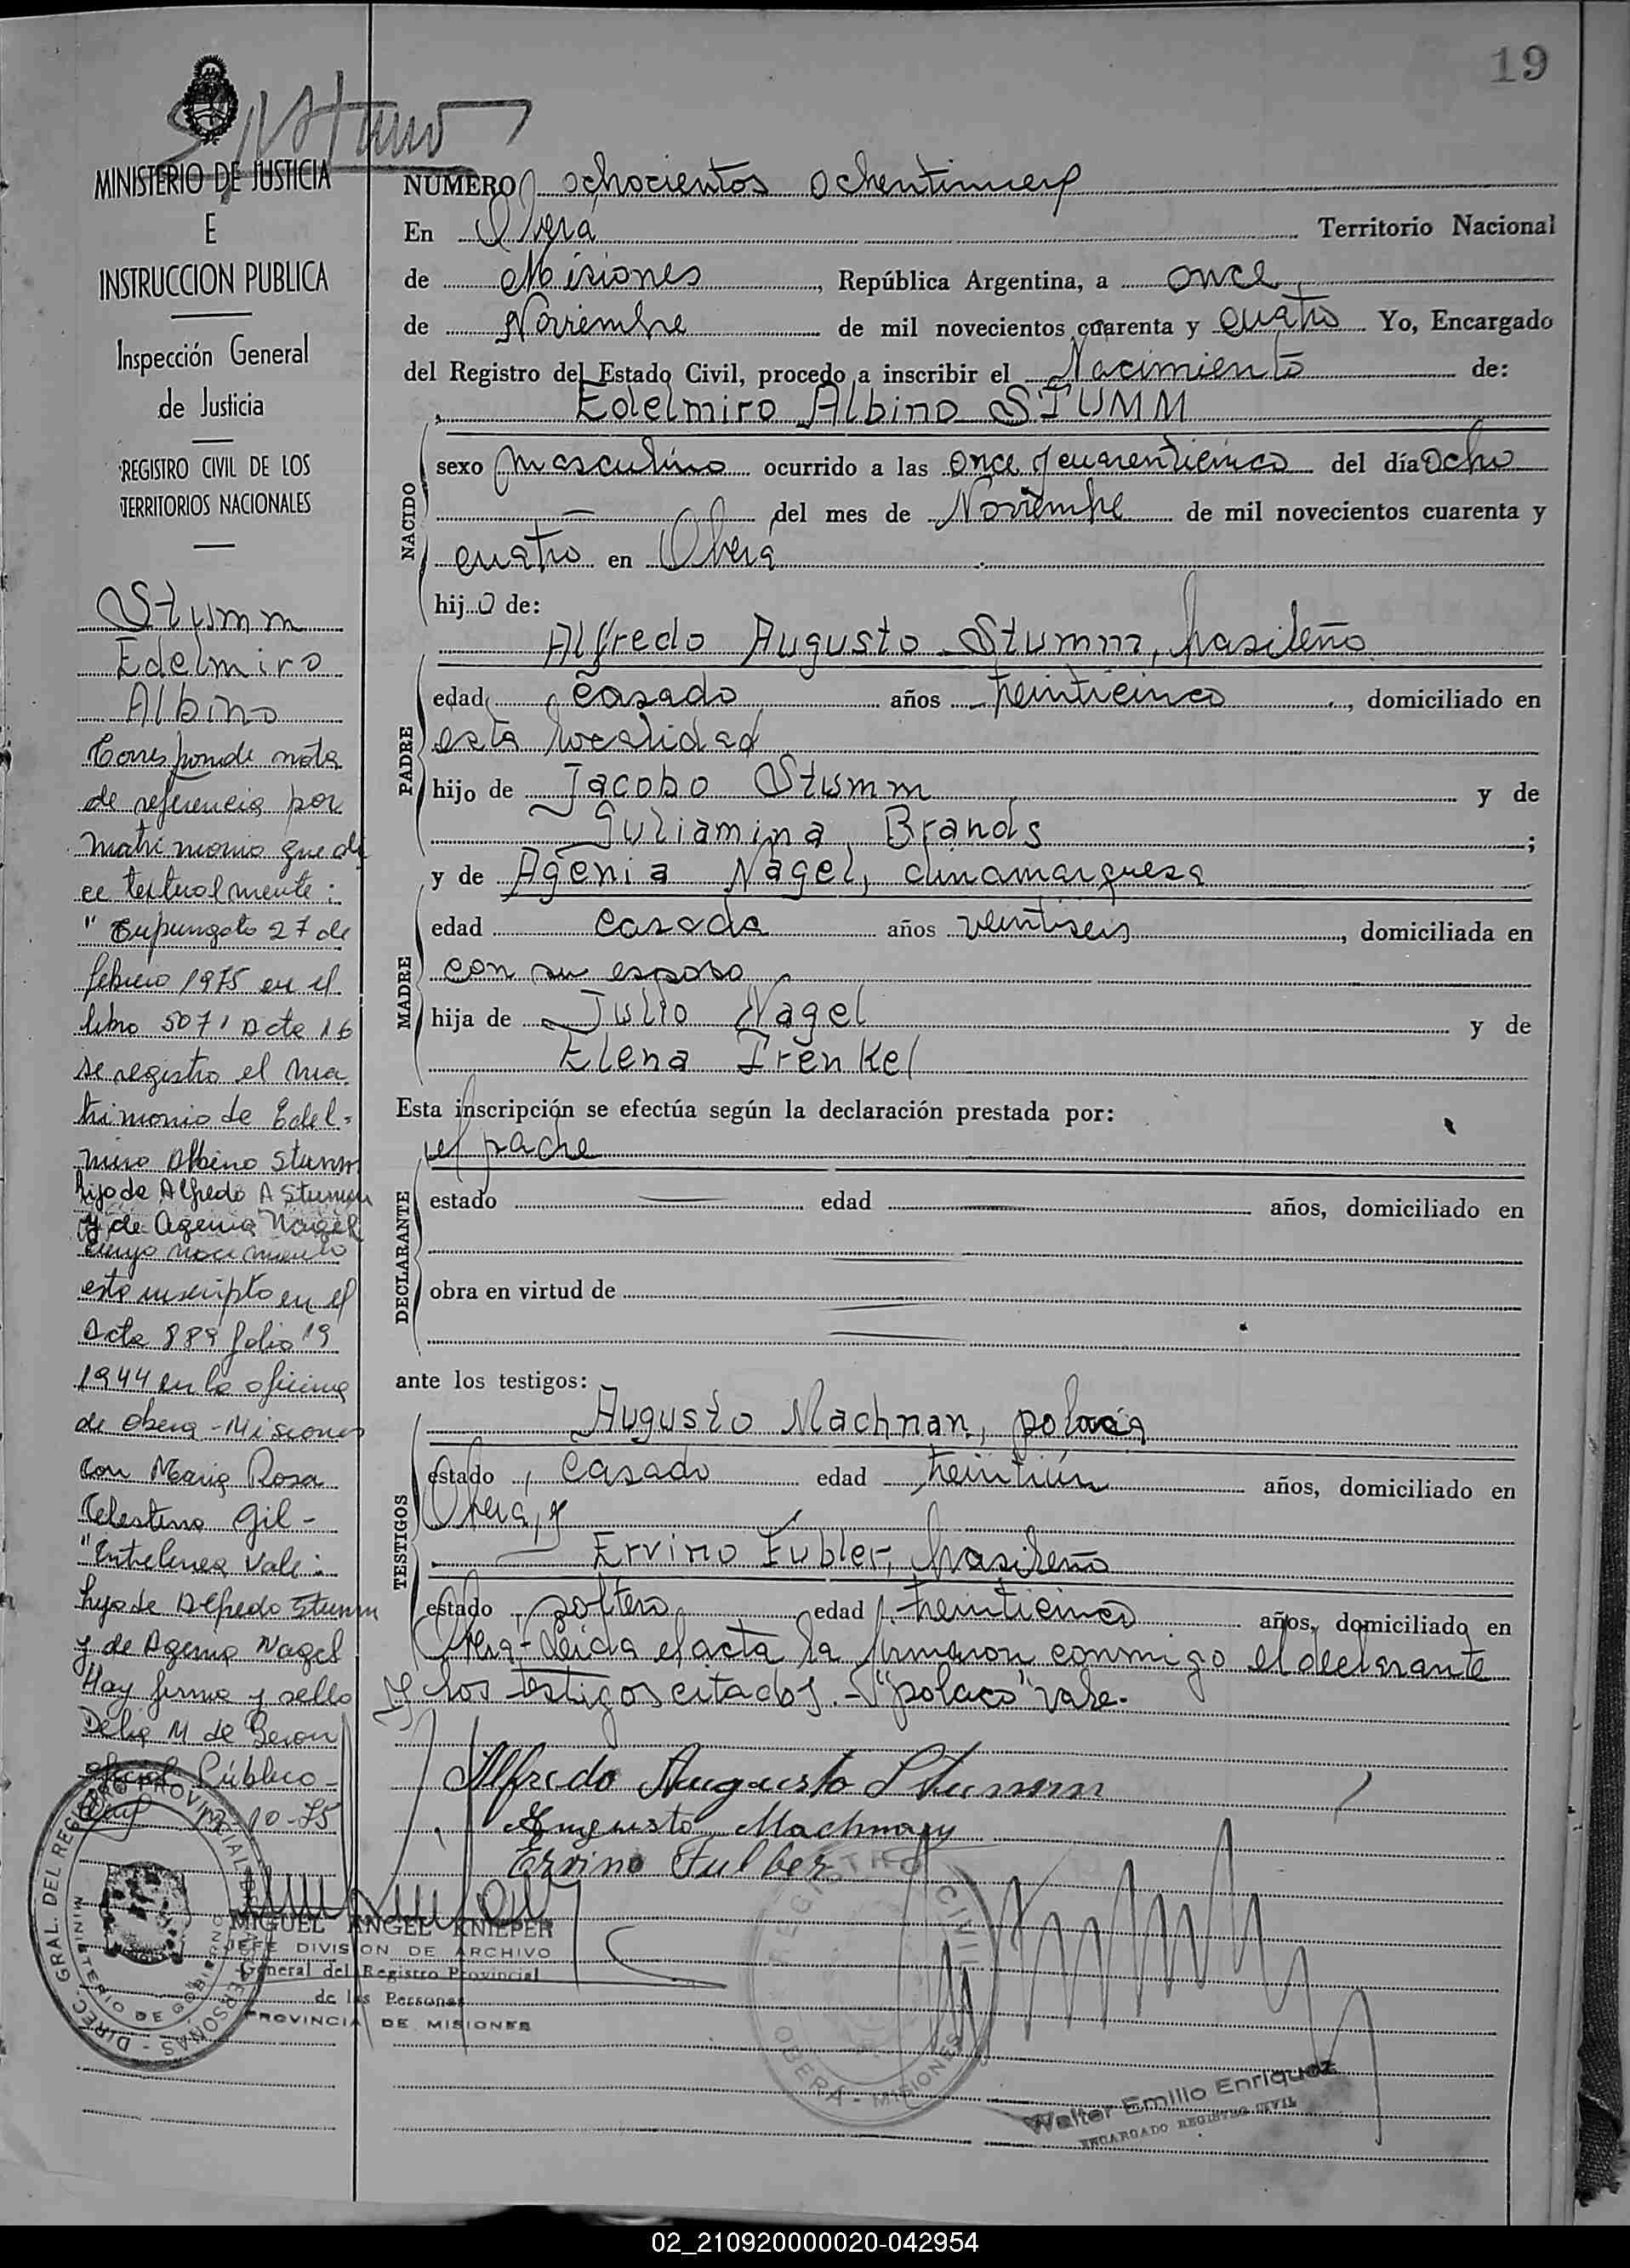 19
MINISTERIO DE JUSTICIA
E
INSTRUCCION PUBLICA
Inspección General
de Justicia
REGISTRO CIVIL DE LOS
TERRITORIOS NACIONALES
Stumm
Edelmiro
Albino
Corresponde nota
de referencia por
matrimonio que di
ce textualmente:
"Tupungato 27 de
febrero 1975 en el
libro 5071 Acta 16
se registro el ma
trimonio de Edel-
miro Albino Stumm
hijo de Alfredo A Stumm
y de Agenia Nagel
cuyo nacimiento
esta inscripto en el
Acta 889 folio 19
1944 en la oficina
de Obera - Misiones
con Maria Rosa
Celestina Gil -
"Entrelinea Vale:
hijo de Alfredo Stumm
y de Agenia Nagel
Hay firma y sello
Delia M de Geron
oficial Público -
10-75
NUMERO ochocientos ochentinueve
En Oberá Territorio Nacional
de Misiones, República Argentina, a once
de Noviembre de mil novecientos cuarenta y cuatro Yo, Encargado
del Registro del Estado Civil, procedo a inscribir el Nacimiento de:
Edelmiro Albino STUMM
NACIDO
sexo masculino ocurrido a las once y cuarenticinco del día ocho
— del mes de Noviembre de mil novecientos cuarenta y
cuatro en Oberá
hijo de:
Alfredo Augusto Stumm, brasileño
PADRE
edad casado años treinticinco, domiciliado en
esta localidad
hijo de Jacobo Stumm y de
Guliamina Brands;
y de Agenia Nagel, dinamarquesa
MADRE
edad casada años veintiseis, domiciliada en
con su esposo
hija de Julio Nagel y de
Elena Frenkel
Esta inscripción se efectúa según la declaración prestada por:
el padre
DECLARANTE
estado edad años, domiciliado en
obra en virtud de
ante los testigos:
Augusto Machnan, polaco
TESTIGOS
estado casado edad treintiún años, domiciliado en
Obera, y
Ervino Fubler, brasileño
estado soltero edad treinticinco años, domiciliado en
Oberá - Leida el acta la firmaron conmigo el declarante
y los testigos citados. - "polaco" vale.
Alfredo Augusto Stumm
Augusto Machnan
Ervino Fulber
DIREC. GRAL. DEL REGISTRO PROVINCIAL DE LAS PERSONAS
MINISTERIO DE GOBIERNO
MIGUEL ANGEL KNIEPER
JEFE DIVISION DE ARCHIVO
General del Registro Provincial
de las Personas
PROVINCIA DE MISIONES
REGISTRO CIVIL
OBERA - MISIONES
Walter Emilio Enriquez
ENCARGADO REGISTRO CIVIL
02_210920000020-042954